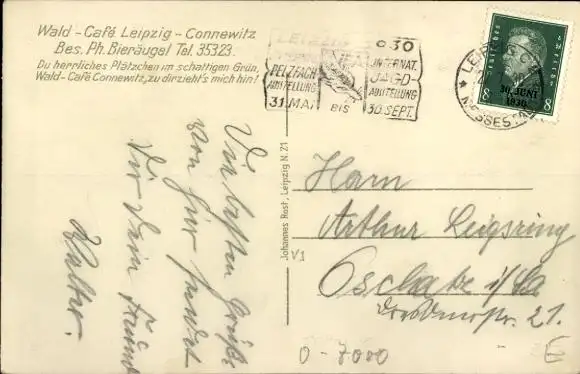 Wald - Café Leipzig - Connewitz
Bes. Ph. Bieräugel Tel. 35323.
Du herrliches Plätzchen im schattigen Grün,
Wald-Café Connewitz, zu dir zieht's mich hin!
LEIPZIG
1930
PELZFACH
AUSSTELLUNG
31. MAI
BIS
INTERNAT.
JAGD
AUSSTELLUNG
30. SEPT.
8 8
30. JUNI
1930
MESSESTADT
Die besten Grüße
von hier sendet
Dir Dein Freund
Walter.
Johannes Rost, Leipzig N 21
V1
Herrn
Arthur Leipsring
Oschatz i/Sa
Dresdnerstr. 21.
0-7000
E